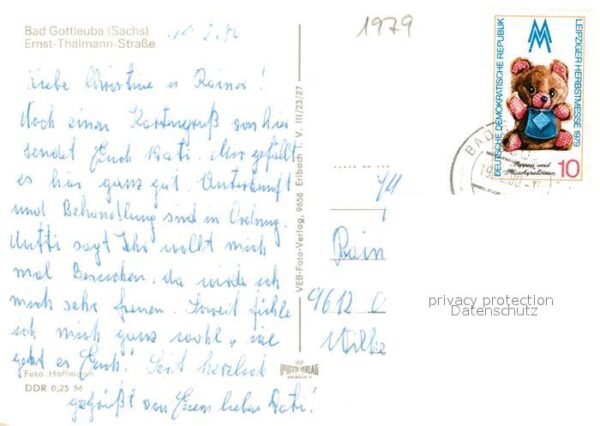 Bad Gottleuba (Sachs)
Ernst-Thälmann-Straße
1979
Liebe Christine u Rainer!
Noch einen Kartengruß von hier
sendet Euch Vati. Mir gefällt
es hier ganz gut. Unterkunft
und Behandlung sind in Ordnung.
Mutti sagt Ihr wollt mich
mal Besuchen, da würde ich
mich sehr freuen. Soweit fühle
ich mich ganz wohl, wie
geht es Euch! Seit herzlich
gegrüßt von Euern lieben Vati!
Foto Hoffmann
DDR 0,25 M
VEB-Foto-Verlag, 9658 Erlbach i. V. III/23/27
FOTO VERLAG
ERLBACH
DEUTSCHE DEMOKRATISCHE REPUBLIK
LEIPZIGER HERBSTMESSE 1979
Puppen und
Plüschspielwaren
10
BAD
Rain
9612
privacy protection
Datenschutz